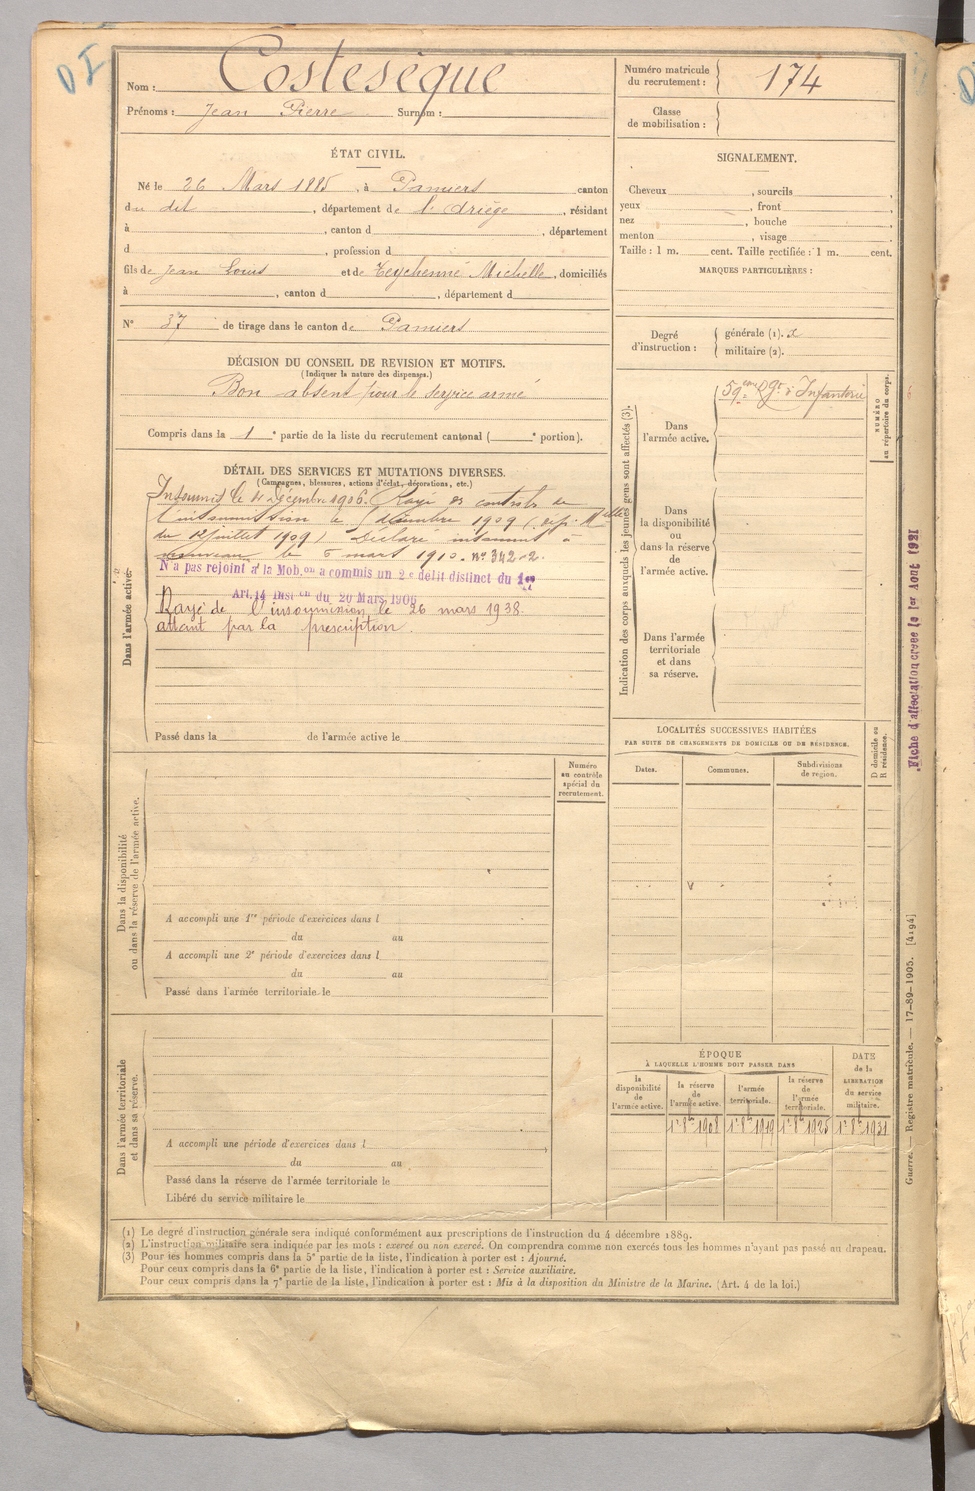 DI
Nom : Costesèque
Prénoms : Jean Pierre Surnom :
Numéro matricule du recrutement : 174
Classe de mobilisation :
ÉTAT CIVIL.
Né le 26 Mars 1885, à Pamiers canton
du dit, département de l'Ariège, résidant
à , canton d , département
d , profession d
fils de Jean Louis et de Teychenné Michelle, domiciliés
à , canton d , département d
N° 37 de tirage dans le canton de Pamiers
SIGNALEMENT.
Cheveux , sourcils ,
yeux , front ,
nez , bouche ,
menton , visage
Taille : 1 m. cent. Taille rectifiée : 1 m. cent.
MARQUES PARTICULIÈRES :
Degré d'instruction :
générale (1). x
militaire (2).
DÉCISION DU CONSEIL DE REVISION ET MOTIFS.
(Indiquer la nature des dispenses.)
Bon absent pour le service armé
Compris dans la 1e partie de la liste du recrutement cantonal ( e portion).
DÉTAIL DES SERVICES ET MUTATIONS DIVERSES.
(Campagnes, blessures, actions d'éclat, décorations, etc.)
Dans l'armée active.
Insoumis le décembre 1906. Rayé des contrôles de
l'insoumission le décembre 1909
du 12 juillet 1909) Déclaré insoumis à
nouveau le 6 mars 1910. n° 342-2.
N'a pas rejoint à la Mob.on a commis un 2e délit distinct du 1er
Art.14 Inst on du 20 Mars 1906
Rayé de l'insoumission le 26 mars 1938.
atteint par la prescription.
Passé dans la de l'armée active le
Indication des corps auxquels les jeunes gens sont affectés (3).
NUMÉRO au répertoire du corps.
Dans l'armée active.
59ème Rgt d'Infanterie
Dans la disponibilité ou dans la réserve de l'armée active.
Dans l'armée territoriale et dans sa réserve.
LOCALITÉS SUCCESSIVES HABITÉES
PAR SUITE DE CHANGEMENTS DE DOMICILE OU DE RÉSIDENCE.
Dates. Communes. Subdivisions de region. D domicile ou R résidence.
Dans la disponibilité ou dans la réserve de l'armée active.
Numéro au contrôle spécial du recrutement.
A accompli une 1re période d'exercices dans l
du au
A accompli une 2e période d'exercices dans l
du au
Passé dans l'armée territoriale le
Dans l'armée territoriale et dans sa réserve.
A accompli une période d'exercices dans l
du au
Passé dans la réserve de l'armée territoriale le
Libéré du service militaire le
ÉPOQUE
À LAQUELLE L'HOMME DOIT PASSER DANS
la disponibilité de l'armée active.
la réserve de l'armée active.
l'armée territoriale.
la réserve de l'armée territoriale.
DATE de la LIBERATION du service militaire.
1er 8bre 1908 1er 8bre 1919 1er 8bre 1925 1er 8bre 1931
Fiche d'affectation créée le 1er Août 1921
Guerre. — Registre matricule. — 17-89-1905. [4194]
(1) Le degré d'instruction générale sera indiqué conformément aux prescriptions de l'instruction du 4 décembre 1889.
(2) L'instruction militaire sera indiquée par les mots : exercé ou non exercé. On comprendra comme non exercés tous les hommes n'ayant pas passé au drapeau.
(3) Pour les hommes compris dans la 5e partie de la liste, l'indication à porter est : Ajourné.
Pour ceux compris dans la 6e partie de la liste, l'indication à porter est : Service auxiliaire.
Pour ceux compris dans la 7e partie de la liste, l'indication à porter est : Mis à la disposition du Ministre de la Marine. (Art. 4 de la loi.)